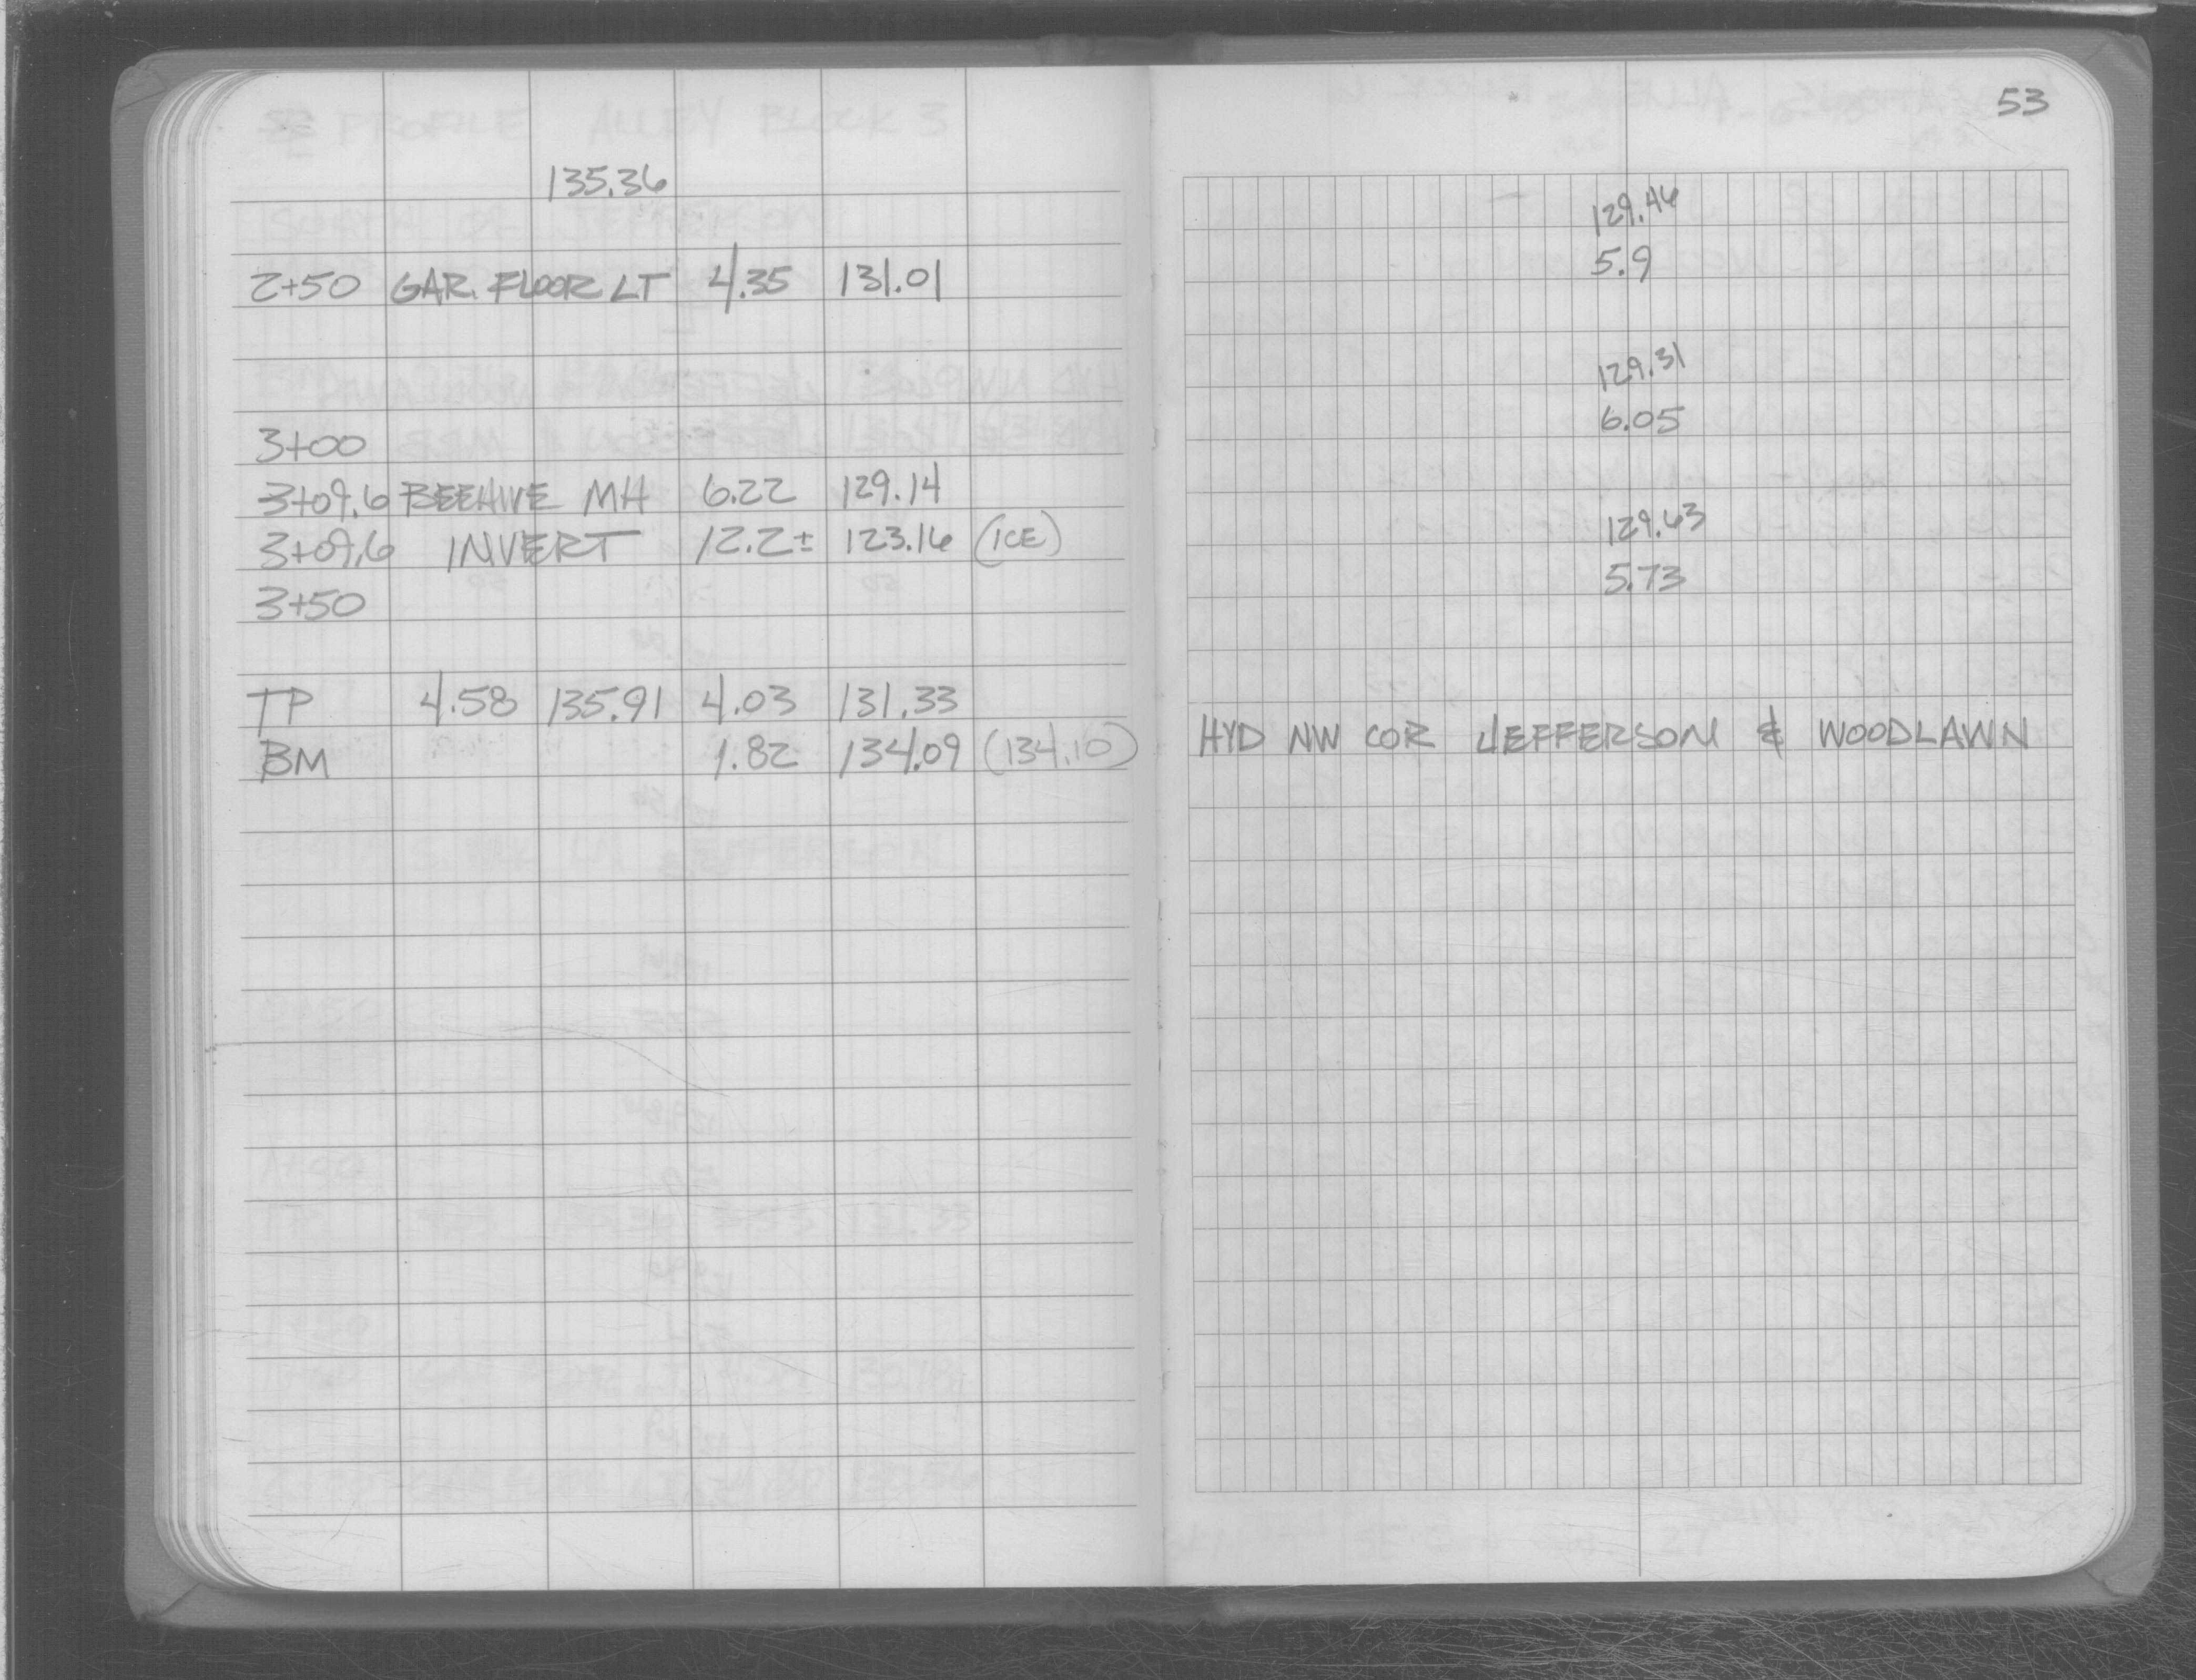 135.36
2+50 GAR. FLOOR LT 4.35 131.01
3+00
3+09.6 BEEHIVE MH 6.22 129.14
3+09.6 INVERT 12.2± 123.16 (ICE)
3+50
TP 4.58 135.91 4.03 131.33
BM 1.82 134.09 (134.10)
53
129.46
5.9
129.31
6.05
129.63
5.73
HYD NW COR JEFFERSON & WOODLAWN